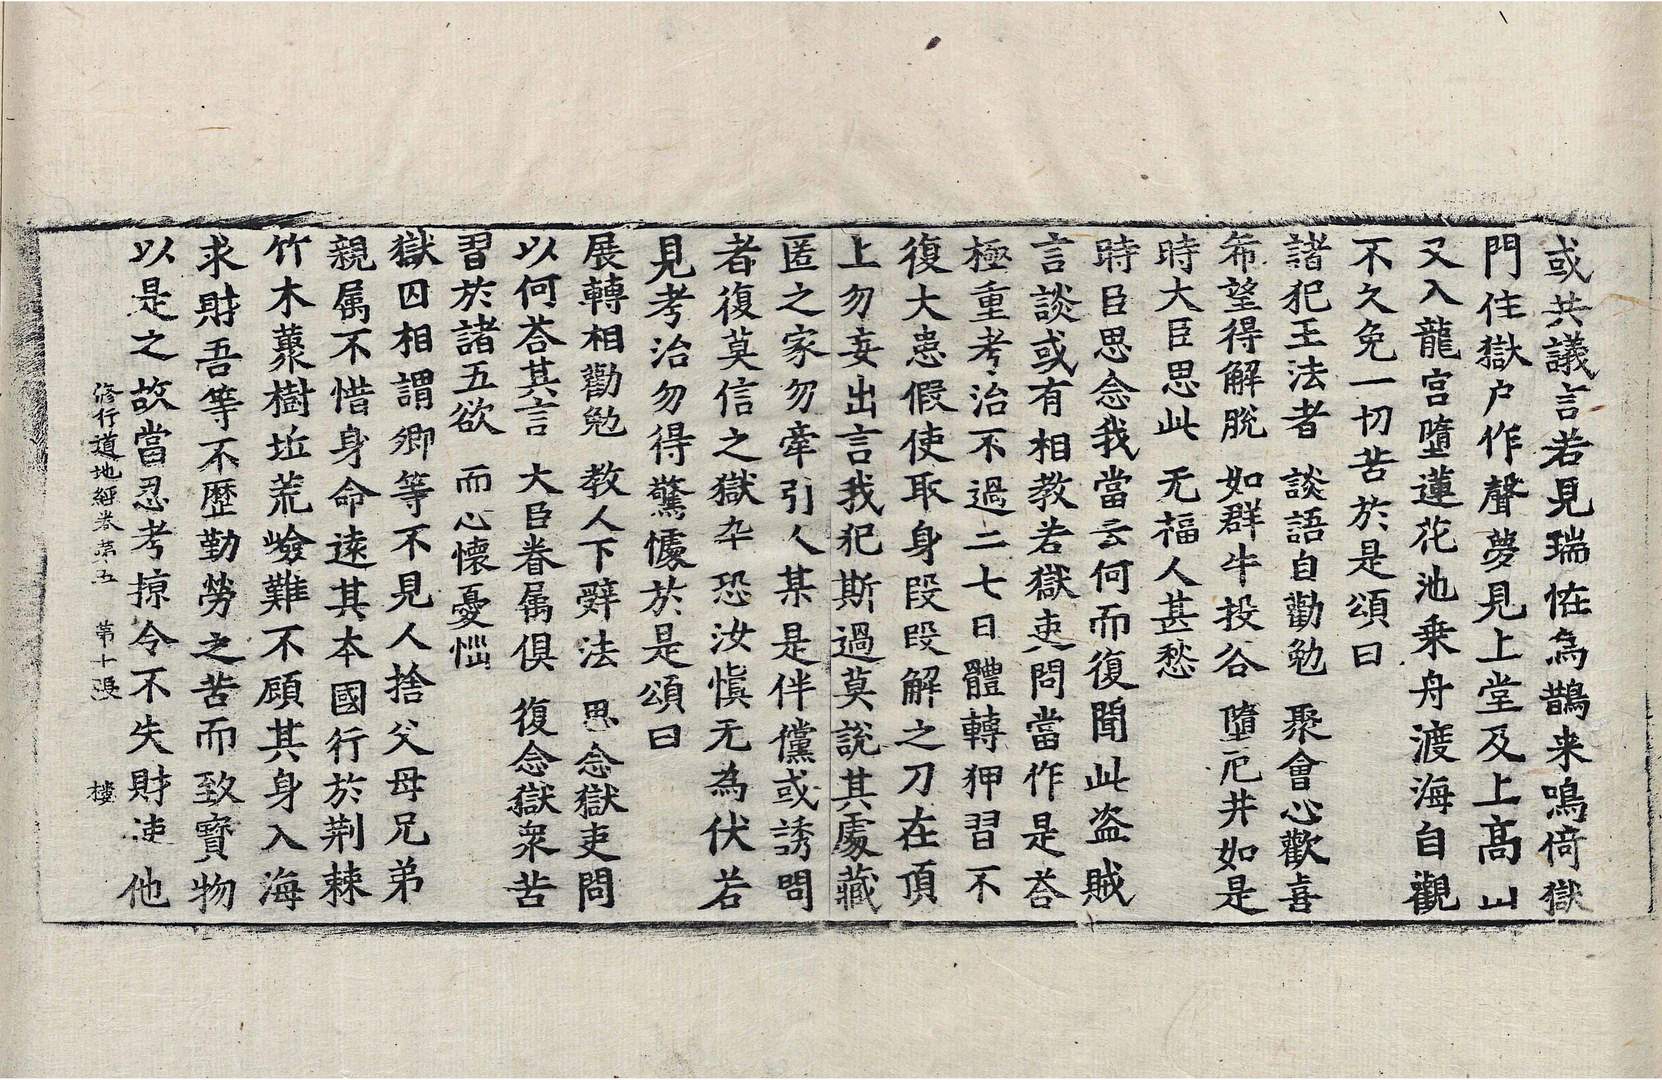 或共議言若見瑞恠為鵲来鳴倚獄
門住獄户作聲夢見上堂及上高山
又入龍宮墮蓮花池乗舟渡海自觀
不久免一切苦於是頌曰
諸犯王法者　談語自勸勉　聚會心歡喜
希望得解脫　如群牛投谷　墮厄井如是
時大臣思此　无福人甚愁
時臣思念我當云何而復聞此盗賊
言談或有相教若獄吏問當作是荅
極重考治不過二七日體轉狎習不
復大患假使取身段段解之刀在頂
上勿妄出言我犯斯過莫說其處藏
匿之家勿牽引人某是伴儻或誘問
者復莫信之獄卒恐汝愼无為伏若
見考治勿得驚懅於是頌曰
展轉相勸勉　教人下辭法　思念獄吏問
以何荅其言　大臣眷属俱　復念獄衆苦
習於諸五欲　而心懷憂惱
獄囚相謂卿等不見人捨父母兄弟
親属不惜身命遠其本國行於荆棘
竹木䕺樹坵荒嶮難不顧其身入海
求財吾等不歷勤勞之苦而致寳物
以是之故當忍考掠令不失財使他
修行道地經卷第五　第十張　樓